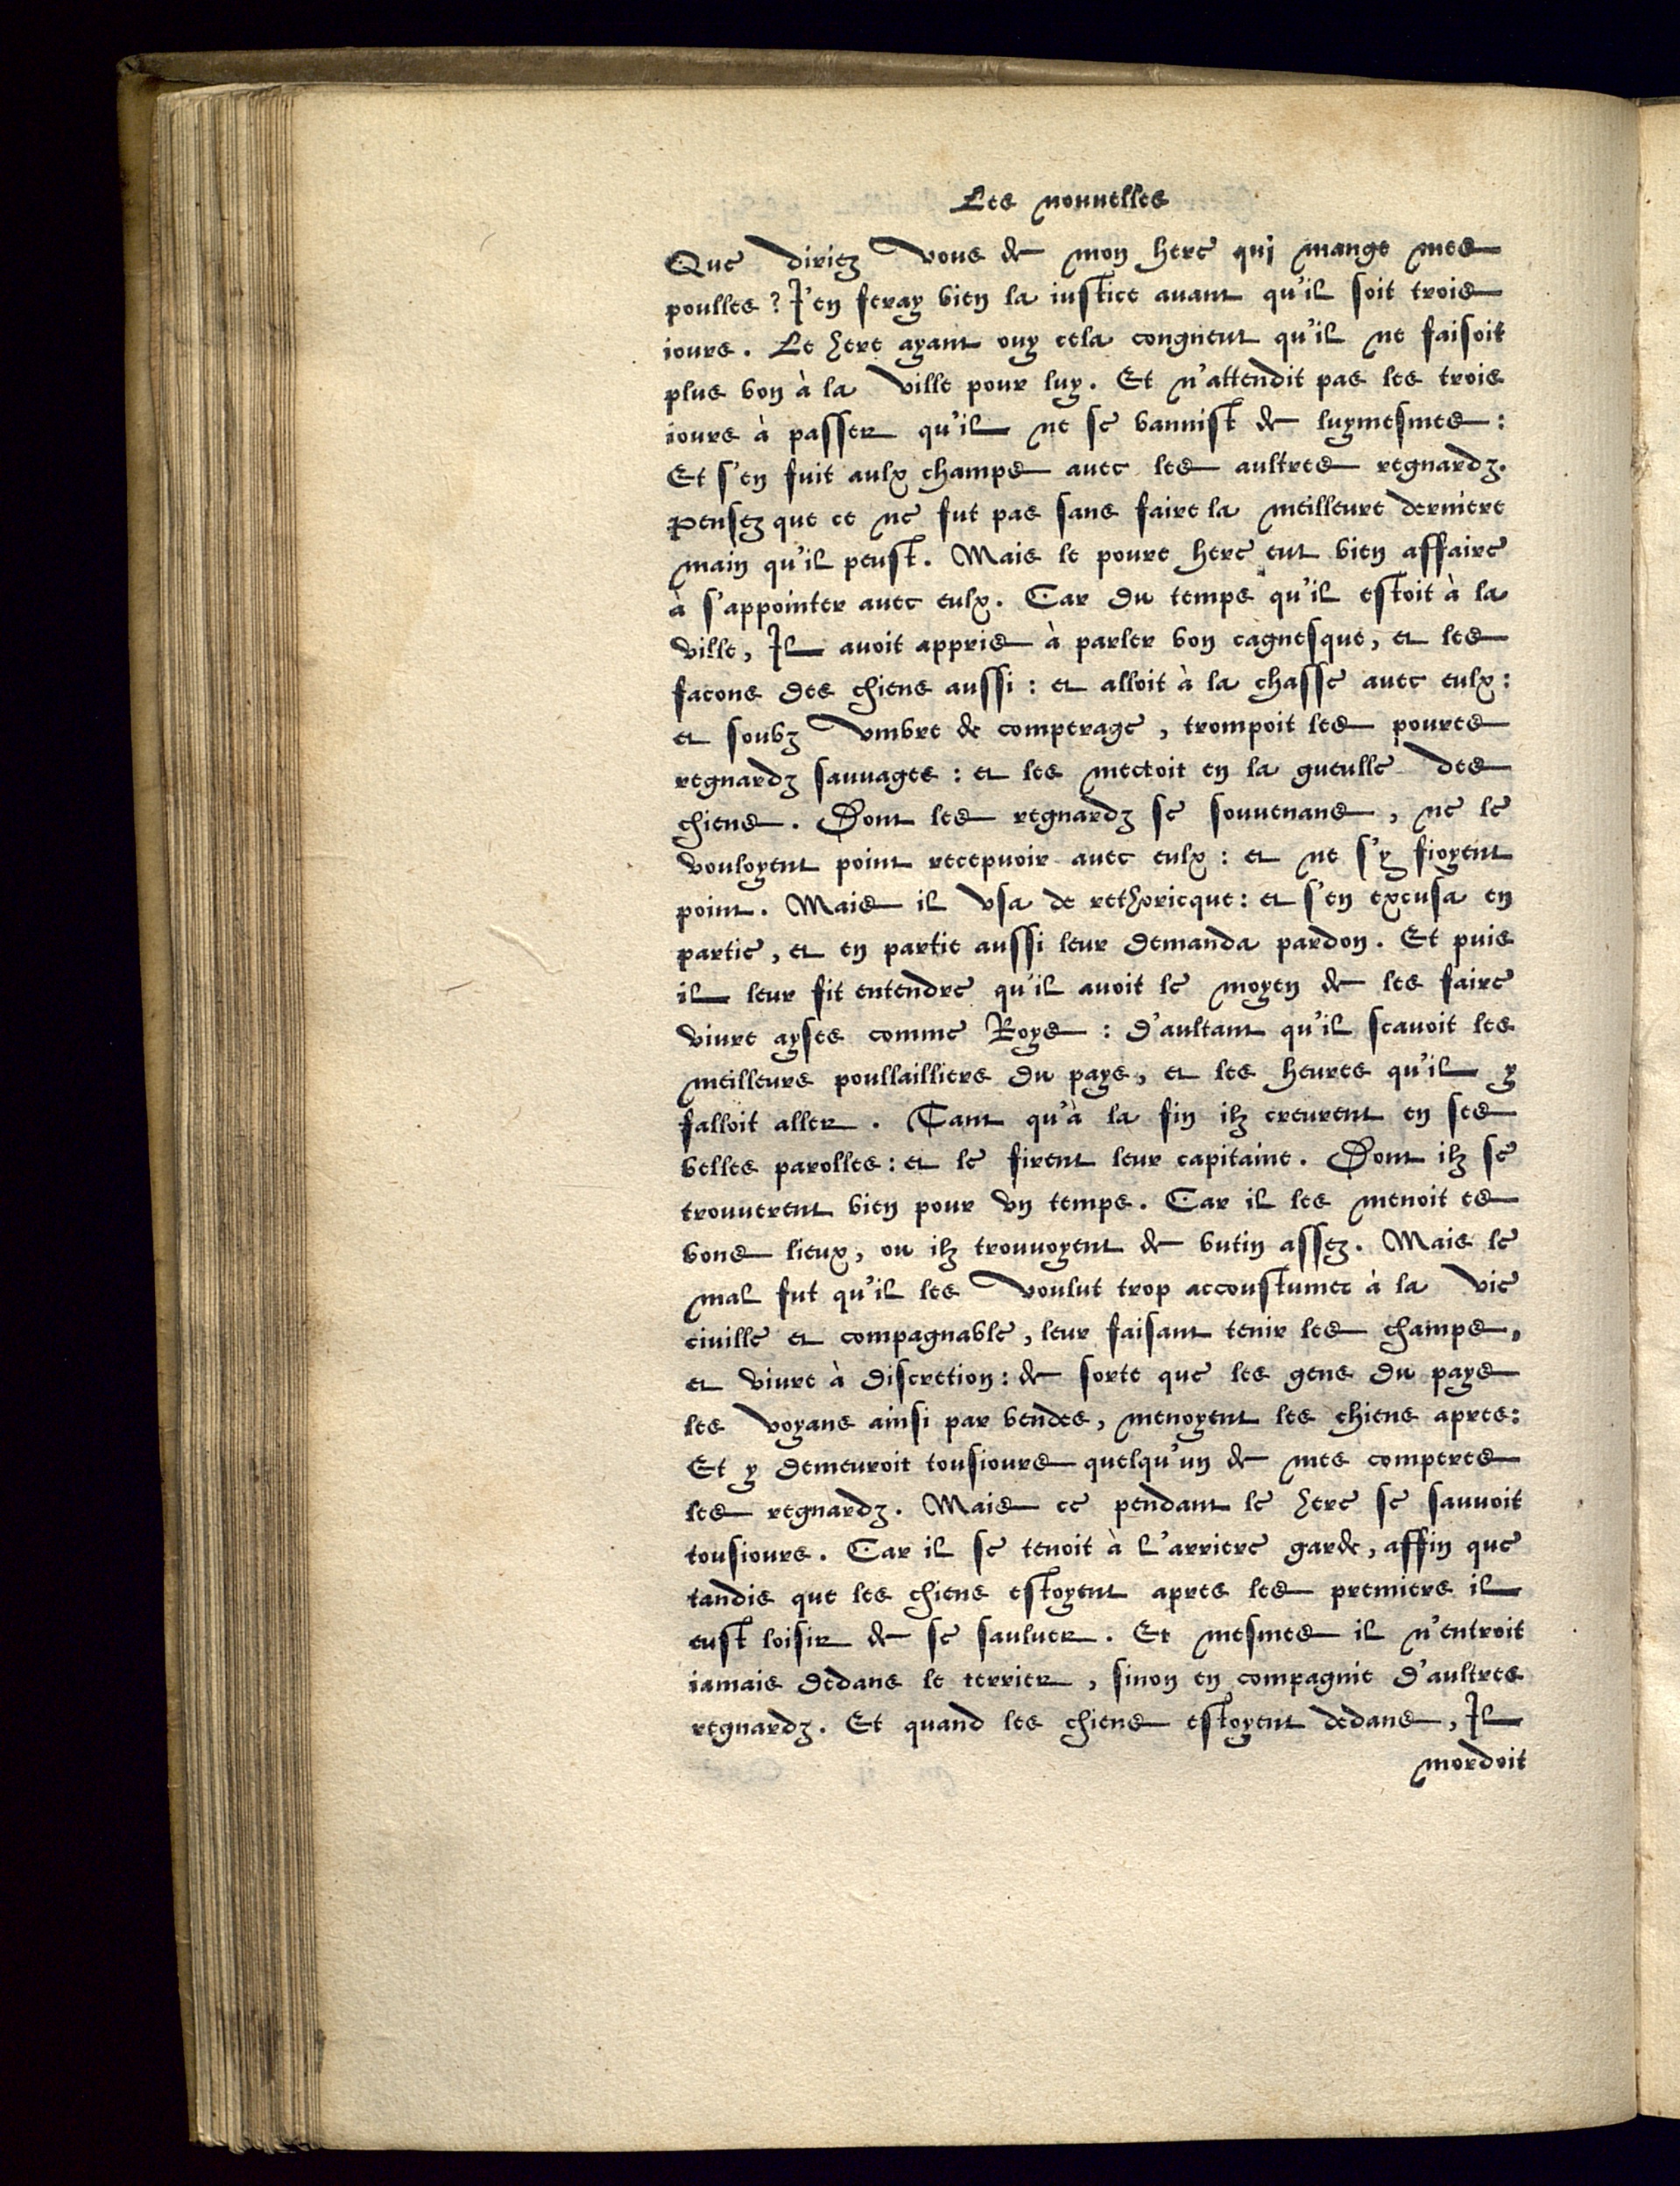 Les nouuelles
Que diriez vous de mon here qui mange mes
poulles? J'en feray bien la iustice auant qu'il soit trois
iours. Le here ayant ouy cela congneut qu'il ne faisoit
plus bon à la ville pour luy. Et n'attendit pas les trois
iours à passer qu'il ne se bannist de luymesmes:
Et s'en fuit aulx champs auec les aultres regnardz.
Pensez que ce ne fut pas sans faire la meilleure derniere
main qu'il peust. Mais le poure here eut bien affaire
à s'appointer auec eulx. Car du temps qu'il estoit à la
ville, Il auoit appris à parler bon cagnesque, et les
facons des chiens aussi: et alloit à la chasse auec eulx:
et soubz vmbre de comperage, trompoit les poures
regnardz sauuages: et les mectoit en la gueulle des
chiens. Dont les regnardz se souuenans, ne le
vouloyent point recepuoir auec eulx: et ne s'y fioyent
point. Mais il vsa de rethoricque: et s'en excusa en
partie, et en partie aussi leur demanda pardon. Et puis
il leur fit entendre qu'il auoit le moyen de les faire
viure ayses comme Roys: d'aultant qu'il scauoit les
meilleurs poullailliers du pays, et les heures qu'il y
falloit aller. Tant qu'à la fin ilz creurent en ses
belles parolles: et le firent leur capitaine. Dont ilz se
trouuerent bien pour vn temps. Car il les menoit es
bons lieux, ou ilz trouuoyent de butin assez. Mais le
mal fut qu'il les voulut trop accoustumer à la vie
ciuille et compagnable, leur faisant tenir les champs,
et viure à discretion: de sorte que les gens du pays
les voyans ainsi par bendes, menoyent les chiens apres:
Et y demeuroit tousiours quelqu'un de mes comperes
les regnardz. Mais ce pendant le here se sauuoit
tousiours. Car il se tenoit à l'arriere garde, affin que
tandis que les chiens estoyent apres les premiers il
eust loisir de se sauluer. Et mesmes il n'entroit
iamais dedans le terrier, sinon en compagnie d'aultres
regnardz. Et quand les chiens estoyent dedans, Il
mordoit